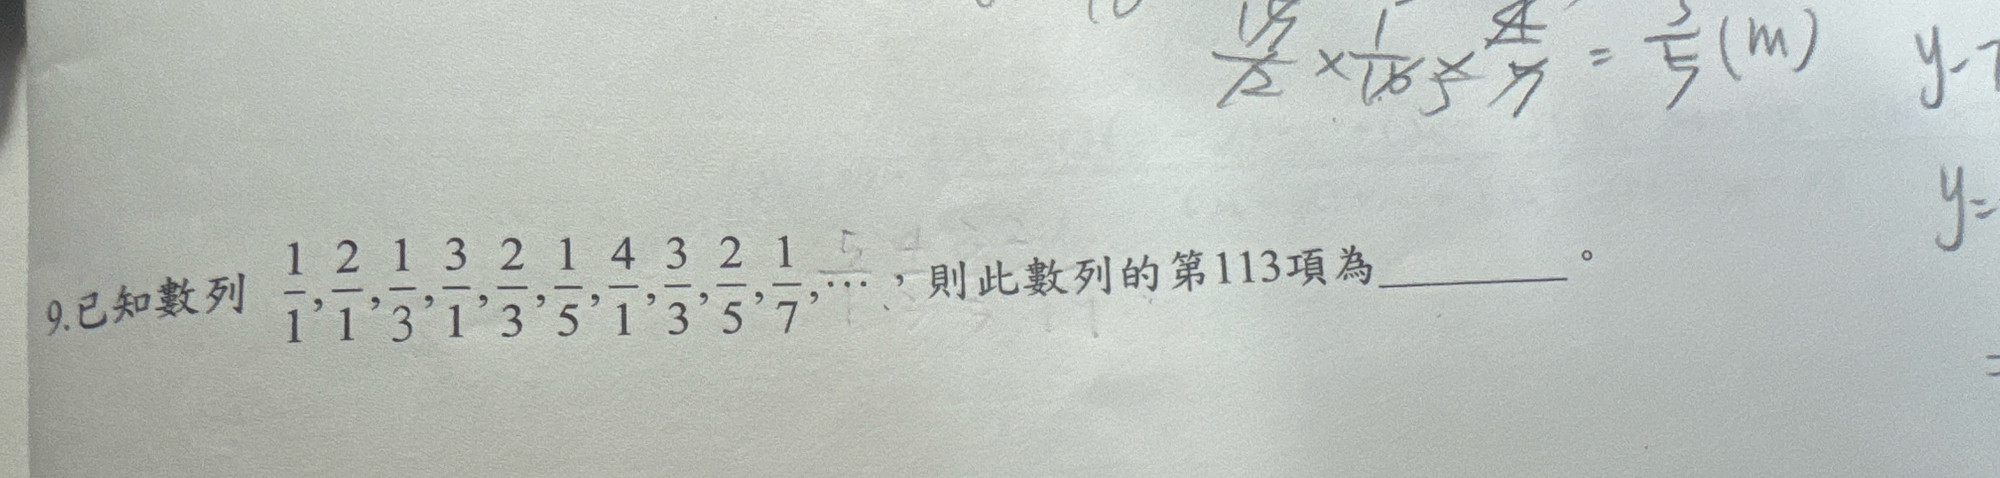 15/2 × 1/16 × 4/5 = 3/5 (m)
y-
y=
9.已知數列 1/1, 2/1, 1/3, 3/1, 2/3, 1/5, 4/1, 3/3, 2/5, 1/7, …，則此數列的第113項為________。
=